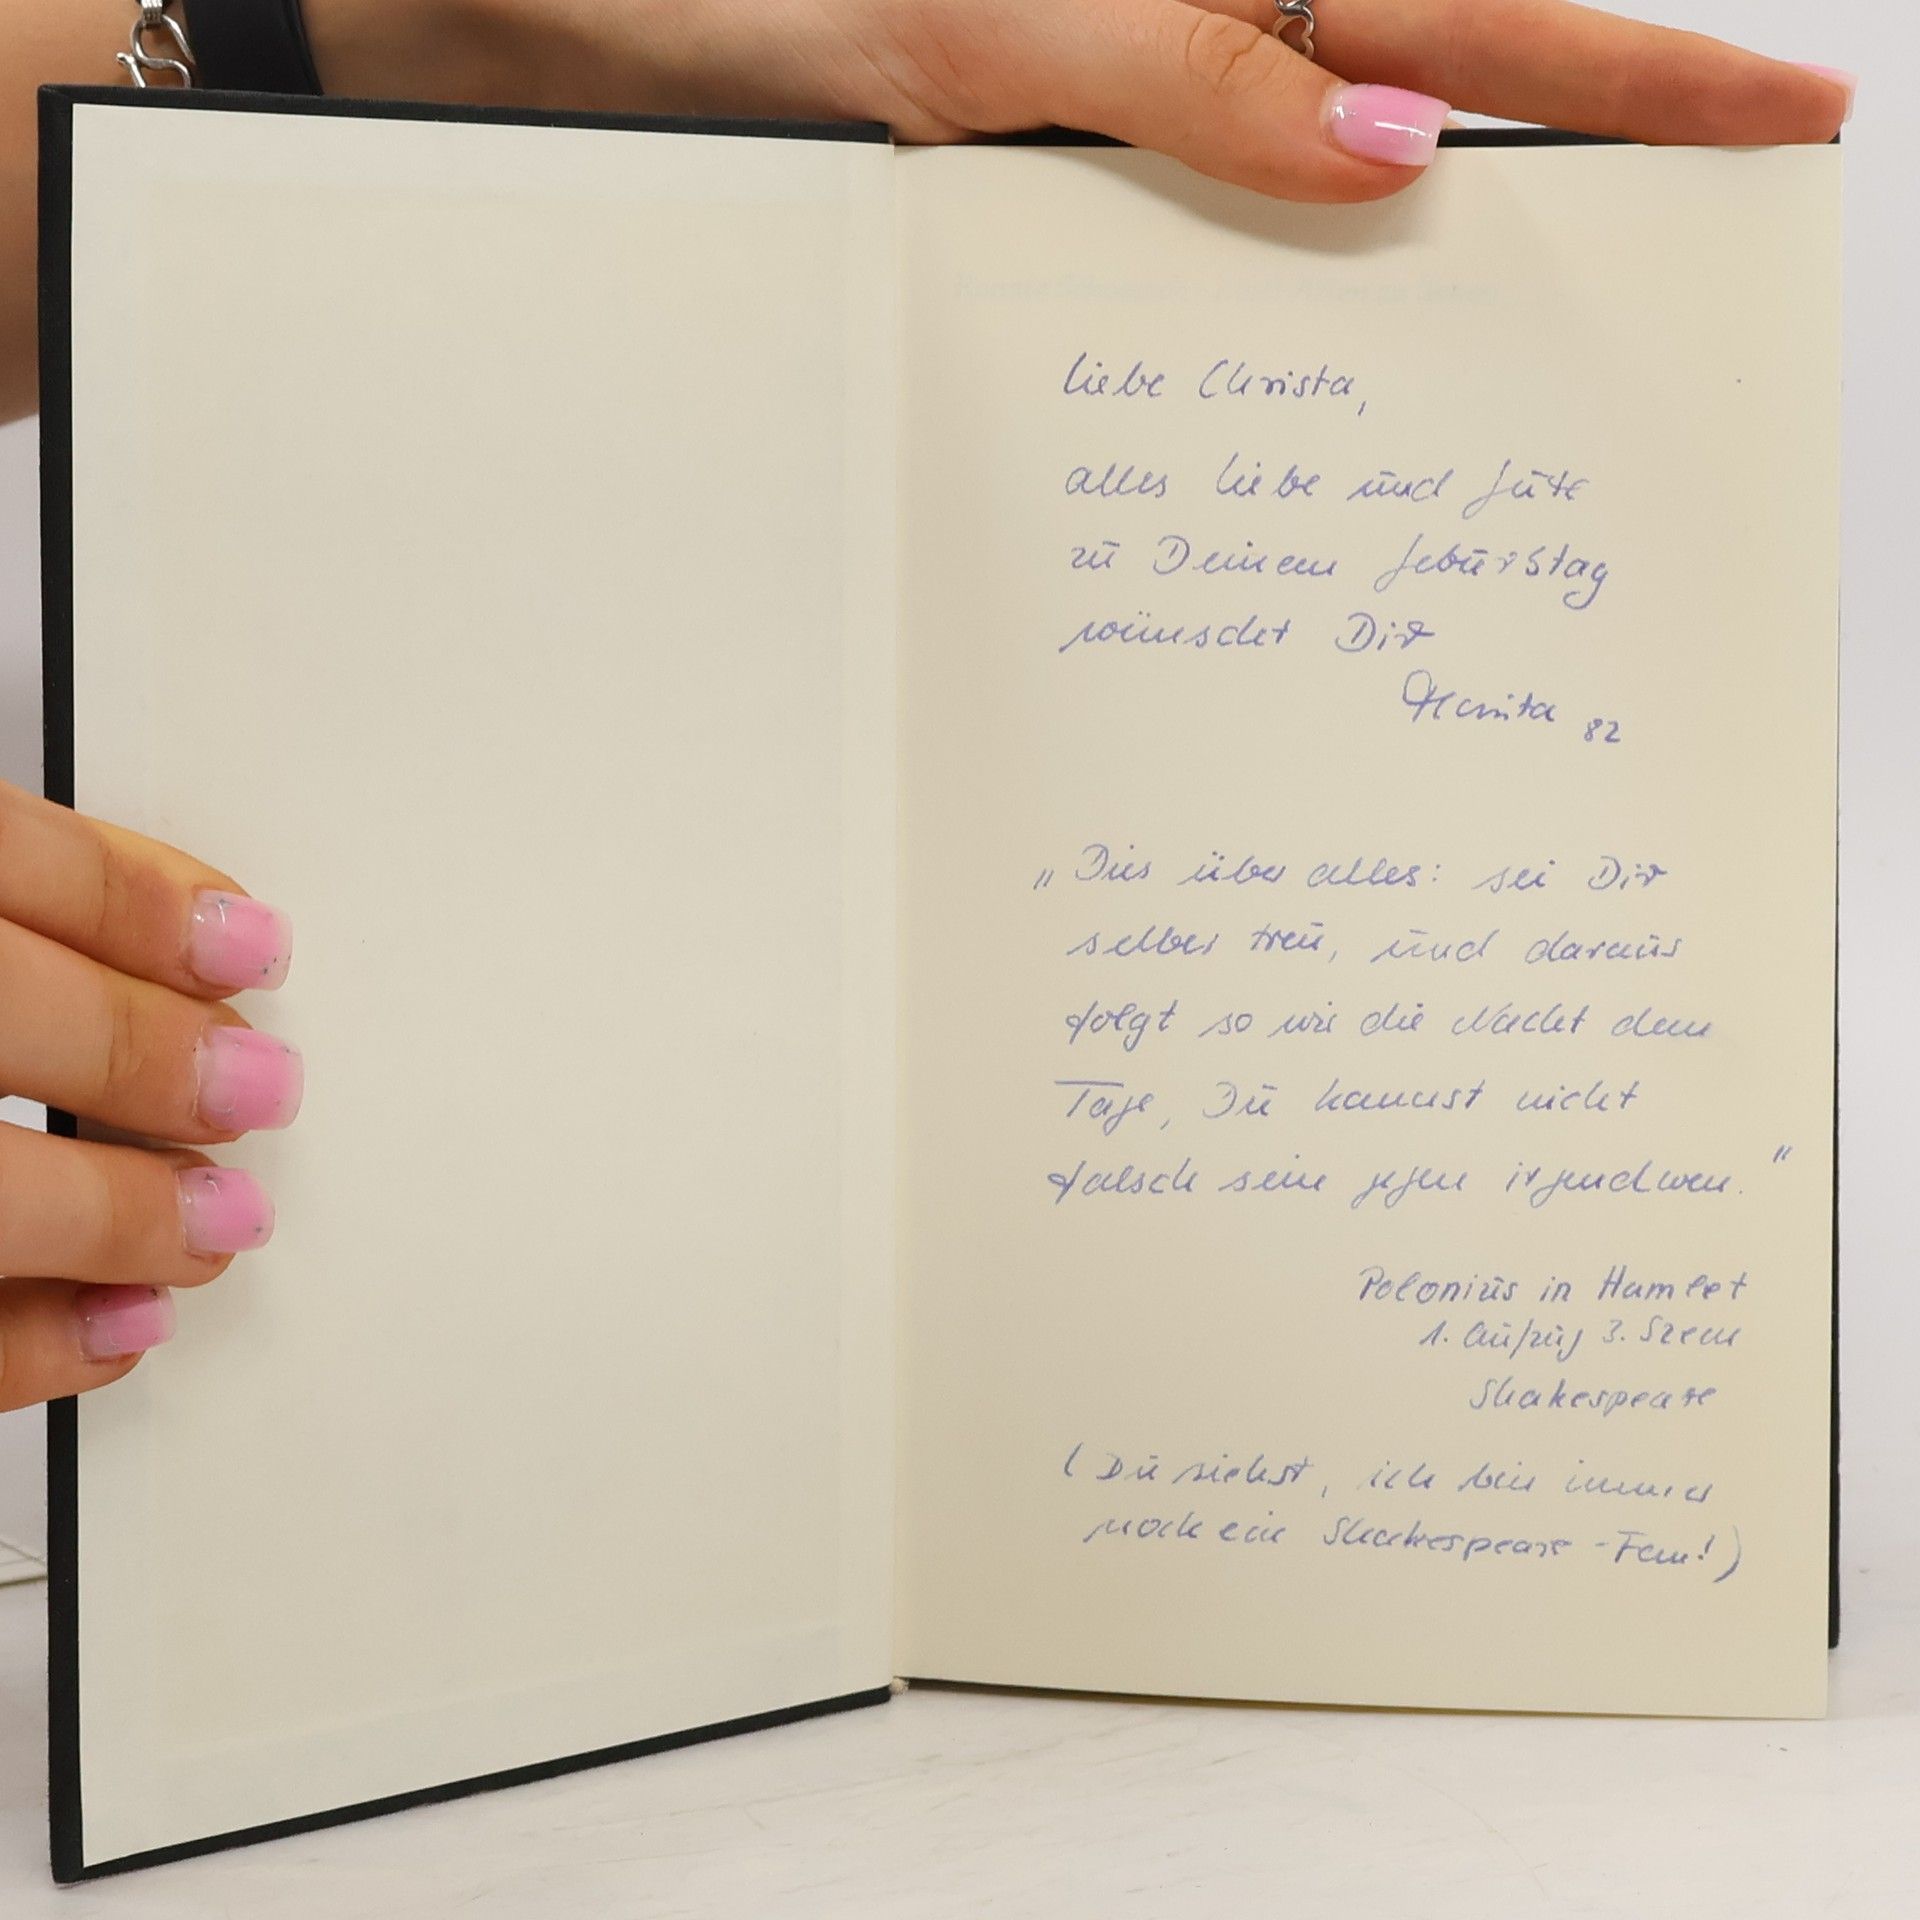 liebe Christa,
alles Liebe und Gute
zu Deinem Geburtstag
wünschet Dir
82
„Dies über alles: sei Dir
selber treu, und daraus
folgt so wie die Nacht dem
Tage, Du kannst nicht
falsch sein gegen irgendwen."
Polonius in Hamlet
1. Aufzug 3. Szene
Shakespeare
(Du siehst, ich bin immer
noch ein Shakespeare-Fan!)